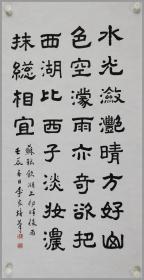 水光瀲灩晴方好山
色空濛雨亦奇欲把
西湖比西子淡妝濃
抹總相宜
蘇軾飲湖上初晴後雨
壬辰春日李